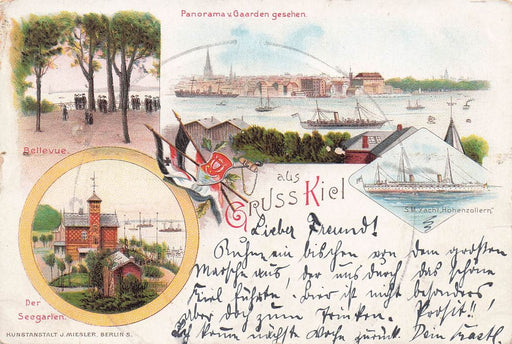 Panorama v. Gaarden gesehen.
Bellevue.
Gruss aus Kiel
S.M. Yacht „Hohenzollern"
Der
Seegarten.
Lieber Freund!
Ruhen ein bischen von dem großten
Marsche aus, der uns durch das schöne
Kiel führte. Bier ist nicht besonders
aber doch zum Trinken. Prosit!!
Ich komme nächste Woche zurück. Dein Kastl.
KUNSTANSTALT J. MIESLER, BERLIN S.